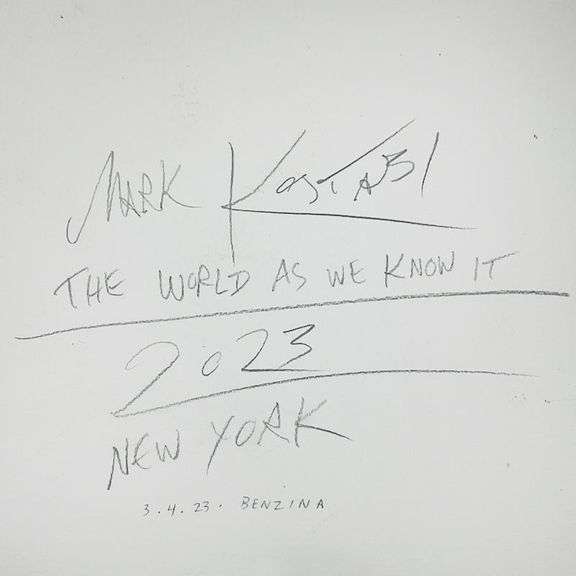 MARK KOSTABI
THE WORLD AS WE KNOW IT
2023
NEW YORK
3.4.23. BENZINA